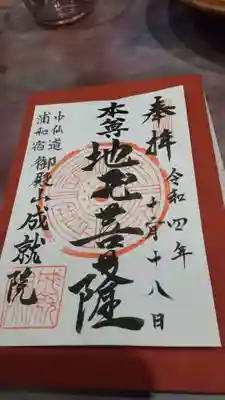 奉拝
令和四年
十月十八日
本尊
地蔵菩薩
中仙道
浦和宿御殿山
成就院